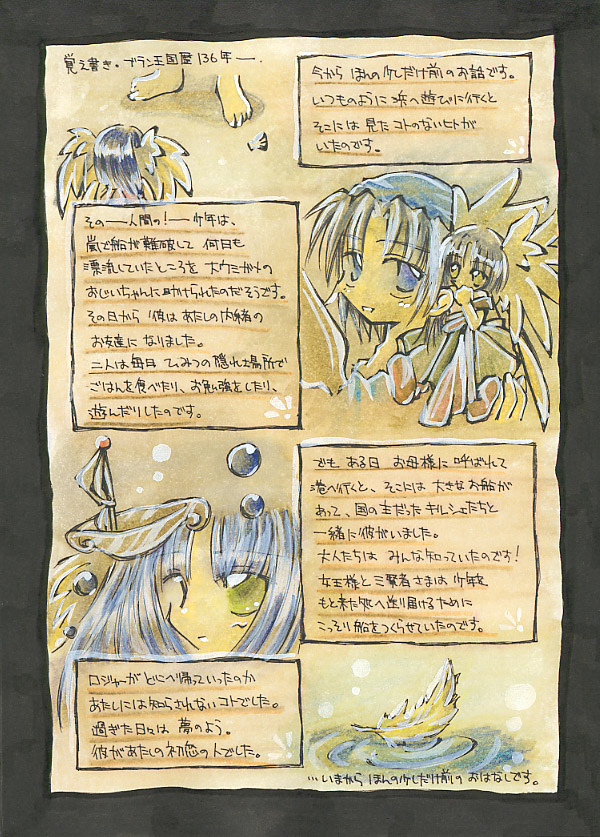 覚え書き。ブラン王国歴136年―.
今から ほんの少しだけ前のお話です。
いつものように浜へ遊びに行くと
そこには 見たコトのないヒトが
いたのです。
その――人間の！――少年は、
嵐で船が難破して 何日も
漂流していたところを 大ウミガメの
おじいちゃんに助けられたのだそうです。
その日から 彼はあたしの内緒の
お友達に なりました。
二人は毎日 ひみつの隠れ場所で
ごはんを食べたり、お勉強をしたり、
遊んだりしたのです。
でも ある日 お母様に 呼ばれて
港へ行くと、そこには 大きなお船が
あって、国の主だった キルシェたちと
一緒に彼がいました。
大人たちは みんな知っていたのです！
女王様と三賢者さまは 少年を
もと来た所へ送り届けるために
こっそり船をつくらせていたのです。
ロジャーが どこへ帰っていったのか
あたしには 知らされないコトでした。
過ぎた日々は 夢のよう。
彼があたしの初恋の人でした。
…いまから ほんの少しだけ前の おはなしです。